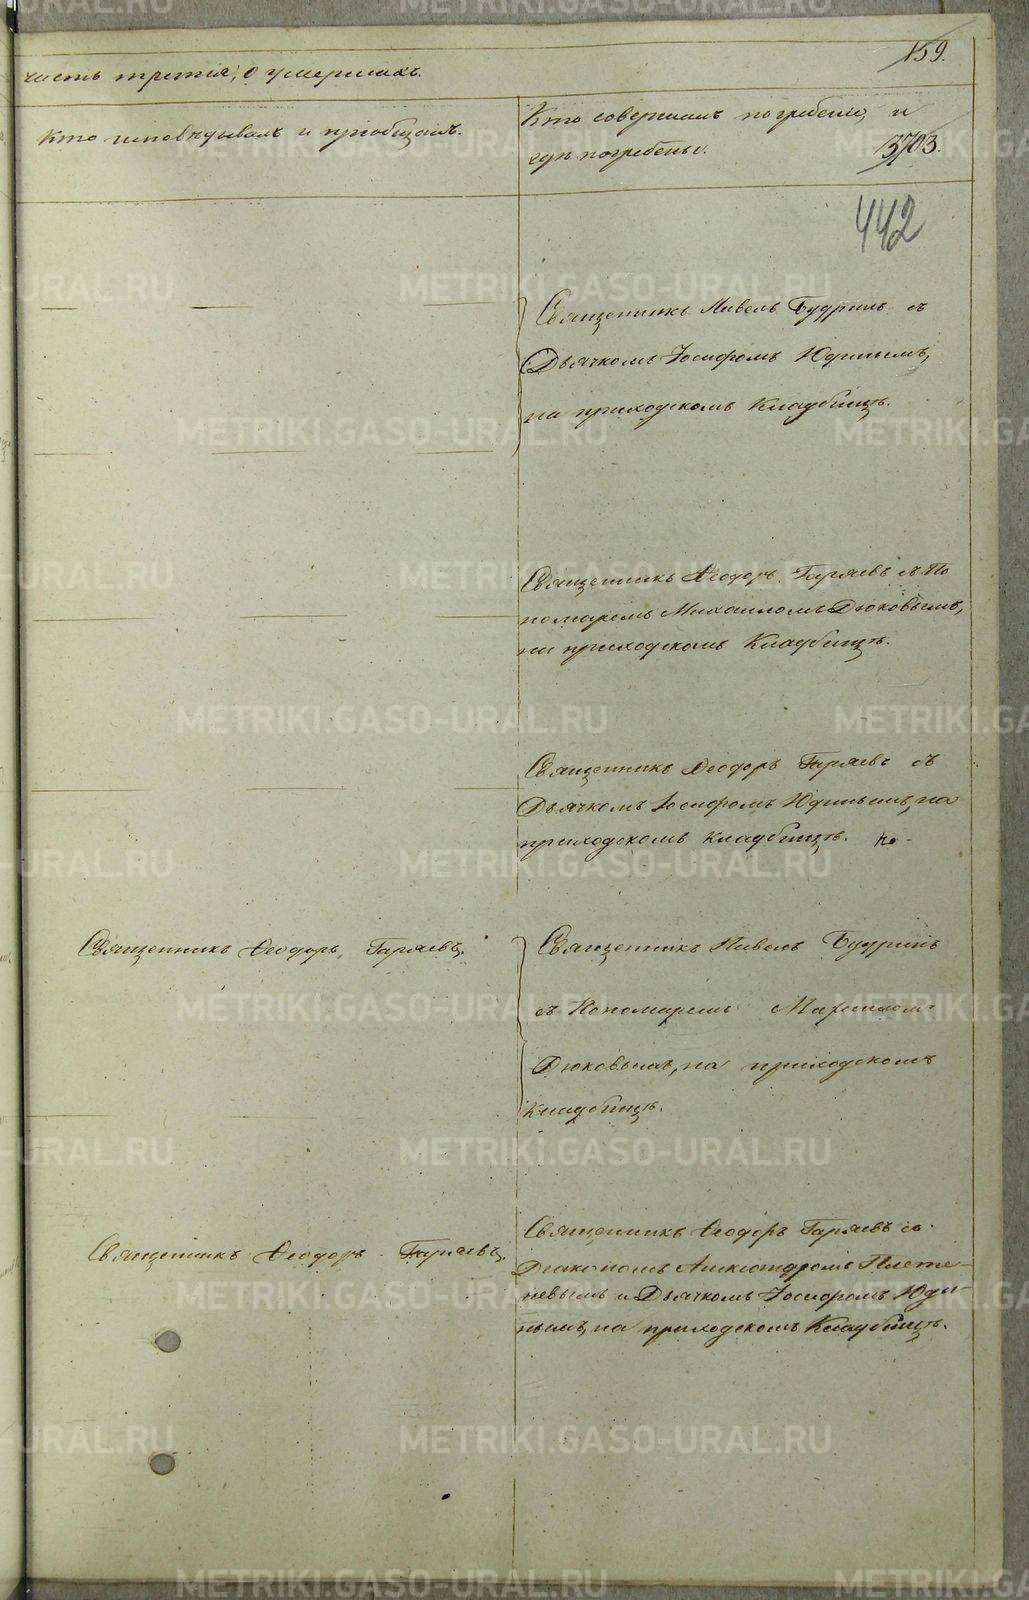 159.
часть третія, о умершихъ.
Кто исповѣдывалъ и пріобщалъ.
Кто совершалъ погребеніе, и
гдѣ погребены.
3703.
442
Священникъ Павелъ Будринъ съ
Дьячкомъ Іосифомъ Юдинымъ,
на приходскомъ Кладбищѣ.
Священникъ Ѳеодоръ Гаряевъ съ По
номаремъ Михаиломъ Дюковымъ,
на приходскомъ Кладбищѣ.
Священникъ Ѳеодоръ Гаряевъ съ
Дьячкомъ Іосифомъ Юдинымъ, на
приходскомъ кладбищѣ.
Священникъ Ѳеодоръ Гаряевъ.
Священникъ Павелъ Будринъ
съ Пономаремъ Михаиломъ
Дюковымъ, на приходскомъ
кладбищѣ.
Священникъ Ѳеодоръ Гаряевъ.
Священникъ Ѳеодоръ Гаряевъ съ
Діакономъ Александромъ Плете-
невымъ и Дьячкомъ Іосифомъ Юди-
нымъ, на приходскомъ Кладбищѣ.
METRIKI.GASO-URAL.RU